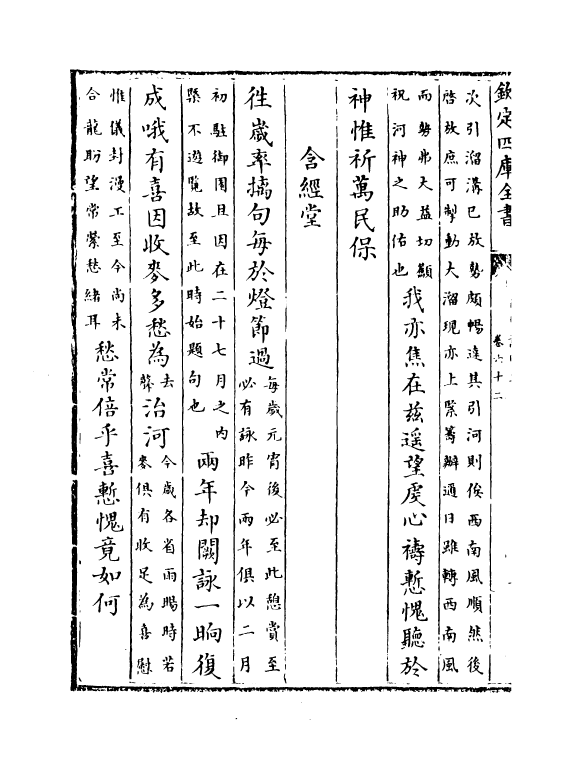 欽定四庫全書
卷六十二
次引溜溝已放勢頗暢達其引河則俟西南風順然後
啓放庶可掣動大溜現亦上緊籌辦通日雖轉西南風
而勢弗大益切顒
祝河神之助佑也
我亦焦在兹遥望虔心禱慙愧聽於
神惟祈萬民保
含經堂
徃歲率摛句每於燈節過
每歲元宵後必至此憩賞至
必有詠昨今兩年俱以二月
初駐御園且因在二十七月之内
槩不遊覽故至此時始題句也
兩年却闕詠一晌復
成哦有喜因收麥多愁為
去
聲
治河
今歲各省雨暘時若
麥俱有收足為喜慰
惟儀封漫工至今尚未
合龍盼望常縈愁緒耳
愁常倍乎喜慙愧竟如何